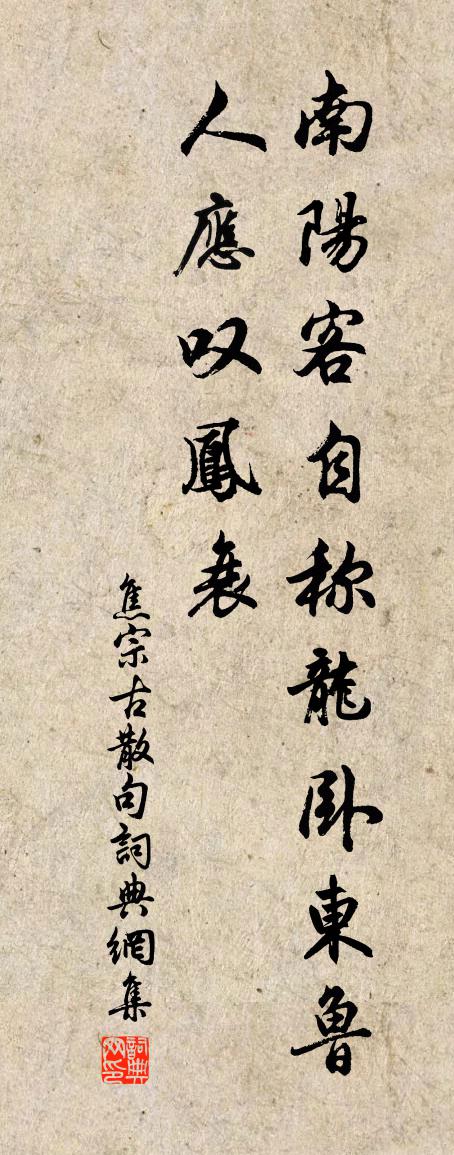 南陽客自称龍卧東魯
人應叹鳳衰
焦宗古散句詞典網集
詞典网印